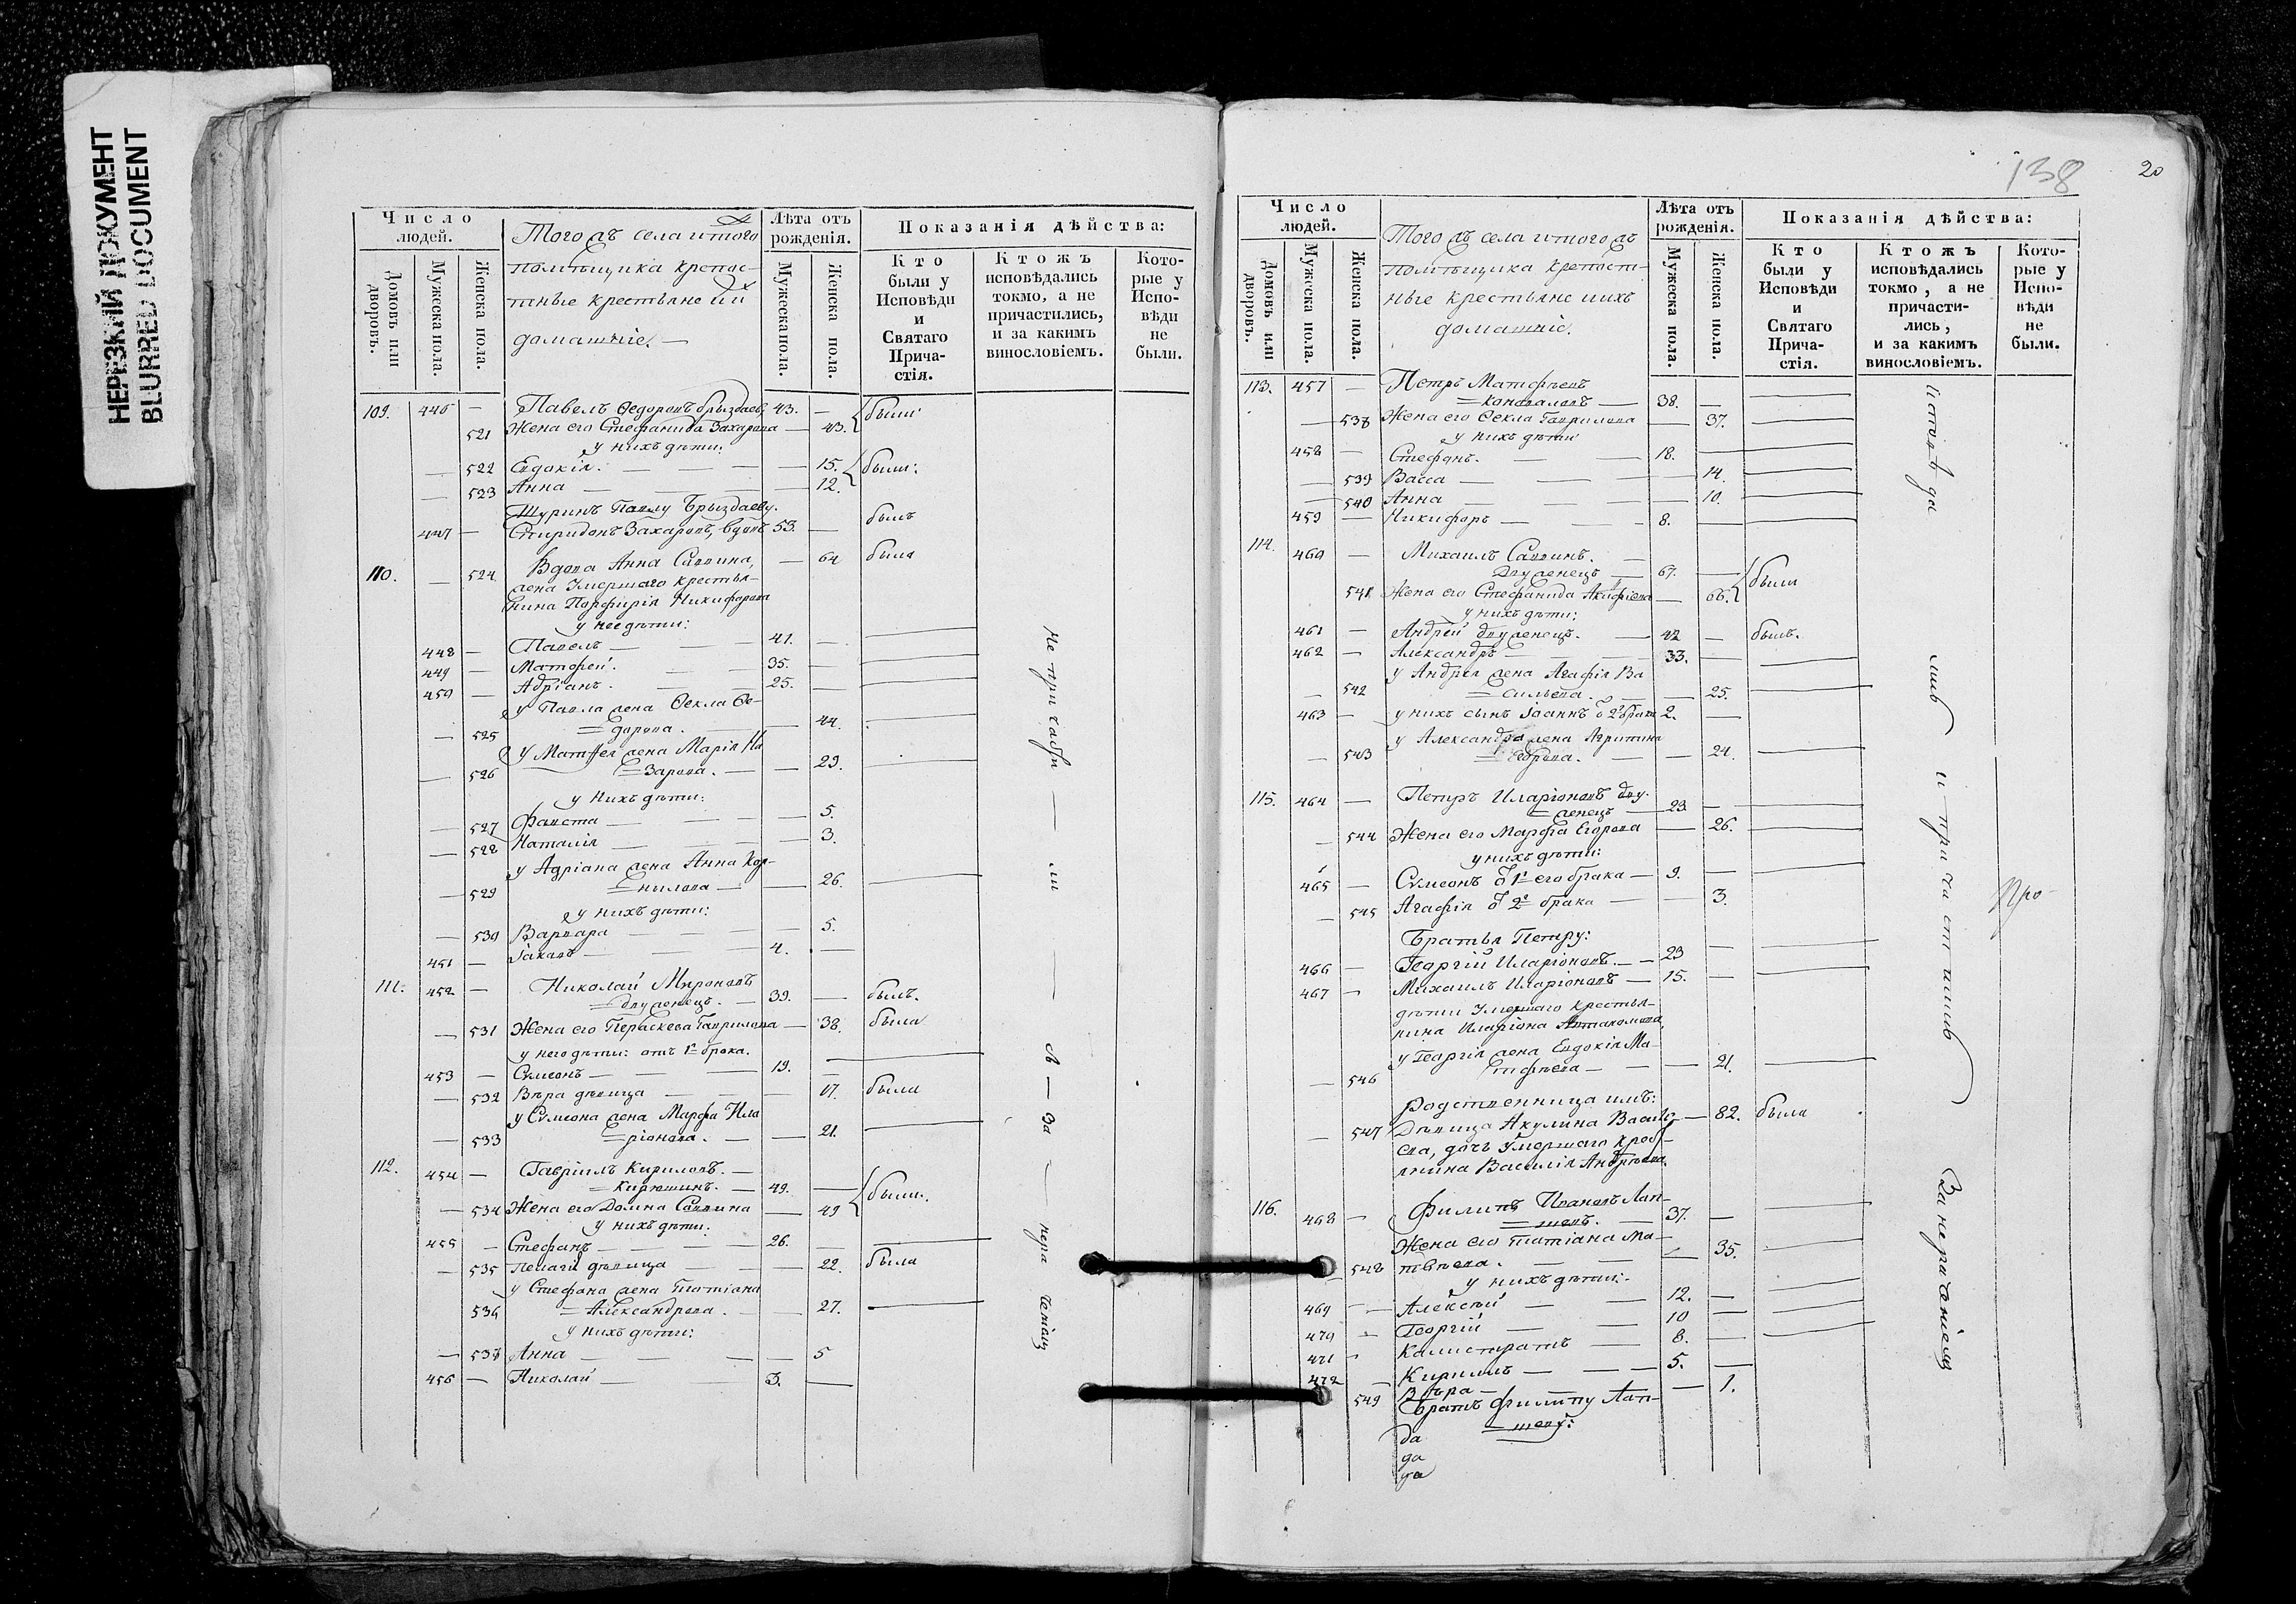 НЕРЕЗКИЙ ДОКУМЕНТ
BLURRED DOCUMENT
Число людей.
Домовъ или дворовъ.
Мужеска пола.
Женска пола.
Тогожъ села итого
помѣщика крепос-
тные крестьяне ии
домашніе. —
Лѣта отъ рожденія.
Мужеска пола.
Женска пола.
Показанія дѣйства:
Кто были у Исповѣди и Святаго Прича-стія.
Ктожъ исповѣдались токмо, а не причастились, и за какимъ винословіемъ.
Кото-рые у Испо-вѣди не были.
109. 446 — Павелъ Ѳедоровъ Брыздаевъ 43. — были
521 Жена его Стефанида Захарова — 43.
у нихъ дѣти:
— 522 Евдокія. — — — 15. были:
— 523 Анна — — — 12.
Шуринъ Павлу Брыздаеву.
447 — Спиридонъ Захаровъ, вдовъ 53. — былъ
110. — 524 Вдова Анна Саввина, — 64 была
жена Умершаго крестья-
нина Порфирія Никифорова
у нее дѣти:
448 — Павелъ — — 41. —
449 — Матфей. — 35. —
450 — Адріанъ. — 25. —
у Павла жена Ѳекла Ѳе-
— 525 =дорова. — 44.
У Матфея жена Марія На
— 526 =зарова. — — 29.
у нихъ дѣти:
— 527 Фавста — — — 5.
— 528 Наталія — — — 3.
у Адріана жена Анна Кор-
— 529 =нилова — — 26.
у нихъ дѣти:
— 530 Варвара — — — 5.
451 — Іаковъ — — 4. —
111. 452 — Николай Мироновъ
=Двуженецъ. — 39. — былъ.
— 531 Жена его Пераскева Гаврилова — 38. была
у него дѣти: отъ 1го брака.
453 — Сѵмеонъ — — 19. —
— 532 Вѣра дѣвица — — — 17. была
у Сѵмеона жена Марфа Ила
— 533 =ріонова. — — 21.
112. 454 — Гавріилъ Кириловъ. —
=Кирюшинъ. — 49. — были.
— 534 Жена его Домна Саввина — 49
у нихъ дѣти:
455 — Стефанъ — — — 26. —
— 535 Пелагія дѣвица — — — 22. была
у Стефана жена Татіана
536 =Александрова. — — 27.
у нихъ дѣти:
— 537 Анна — — — — 5
456 — Николай — — 3. —
Не при — ли — — за — нера
138
20
Число людей.
Домовъ или дворовъ.
Мужеска пола.
Женска пола.
Тогожъ села итогожъ
помѣщика крепост-
ные крестьяне иихъ
домашніе.
Лѣта отъ рожденія.
Мужеска пола.
Женска пола.
Показанія дѣйства:
Кто были у Исповѣди и Святаго Прича-стія.
Ктожъ исповѣдались токмо, а не причасти-лись, и за какимъ винословіемъ.
Кото-рые у Испо-вѣди не были.
113. 457 — Петръ Матфѣевъ
=Коноваловъ — 38. —
— 538 Жена его Ѳекла Гаврилова — 37.
у нихъ дѣти
458 — Стефанъ. — — 18. —
— 539 Васса — — — — 14.
— 540 Анна — — — 10.
459 — Никифоръ — — 8. —
114. 460 — Михаилъ Саввинъ. —
Двуженецъ — 67. — были
541 Жена его Стефанида Акифіева — 66.
у нихъ дѣти:
461 — Андрей двуженецъ. — 42 — былъ.
462 — Александръ — — 33. —
у Андрея жена Агафія Ва
— 542 =сильева. — — 25.
463 — у нихъ сынъ Іоаннъ ѿ 2го брака 2. —
у Александра жена Агрипина
— 543 =Егорова. — — 24.
115. 464 — Петръ Иларіоновъ дву-
=женецъ — 29. —
— 544 Жена его Марфа Егорова — 26.
у нихъ дѣти:
465 — Сѵмеонъ ѿ 1го его брака — 9. —
— 545 Агафія ѿ 2го брака — — 3.
Братья Петру:
466 — Георгій Иларіоновъ. — — 23 —
467 — Михаилъ Иларіоновъ — 15. —
дѣти Умершаго крестья-
нина Иларіона
у Георгія жена Евдокія Ма-
— 546 =тфѣева — — — 21.
родственница имъ:
— 547 Дѣвица Акулина Василь- — 82. была
ева, дочь Умершаго крес-
янина Василія Андрѣева.
116. 468 — Филипъ Ивановъ Лап-
=шовъ. — 37. —
Жена его Татіана Ма-
548 твѣева. — — — 35.
у нихъ дѣти:
469 — Алексѣй — — 12. —
470 — Георгій — — 10 —
471 — Калистратъ — 8. —
472 — Кирилъ — — — 5. —
549 Вѣра — — — 1.
Братъ Филипу Лап-
=шову:
да
да
да
Исповѣда лись и при ча стились
Про
За нераченіемъ